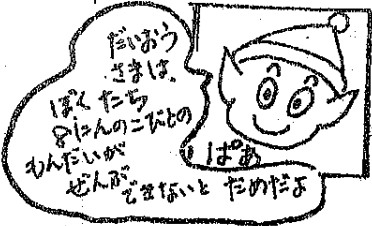 だいおう
さまは、
ぼくたち
8にんのこびとの
もんだいが
ぜんぶ
できないと だめだよ
ぱあ